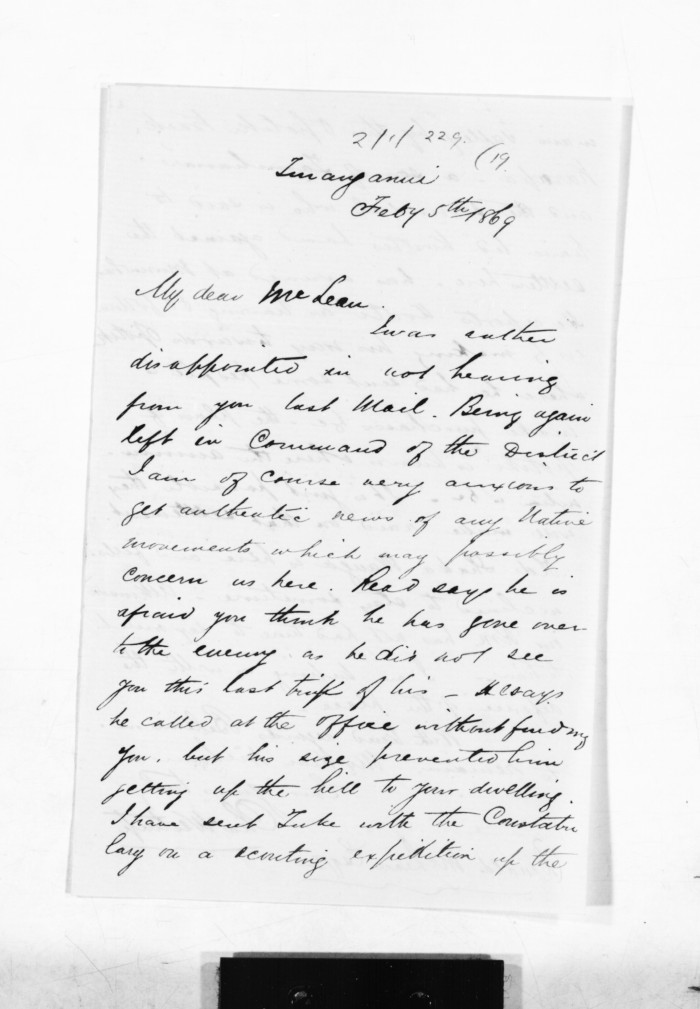 2/1/229.
(19
Turanganui
Feby 5th 1869
My dear McLean.
I was rather
disappointed in not hearing
from you last Mail. Being again
left in Command of the District
I am of course very anxious to
get authentic news of any Native
movements which may possibly
concern us here. Read says he is
afraid you think he has gone over
to the enemy as he did not see
you this last trip of his – He says
he called at the office without finding
you, but his size prevented him
getting up the hill to your dwelling.
I have sent Tuke with the Constabu
lary on a scouting expedition up the